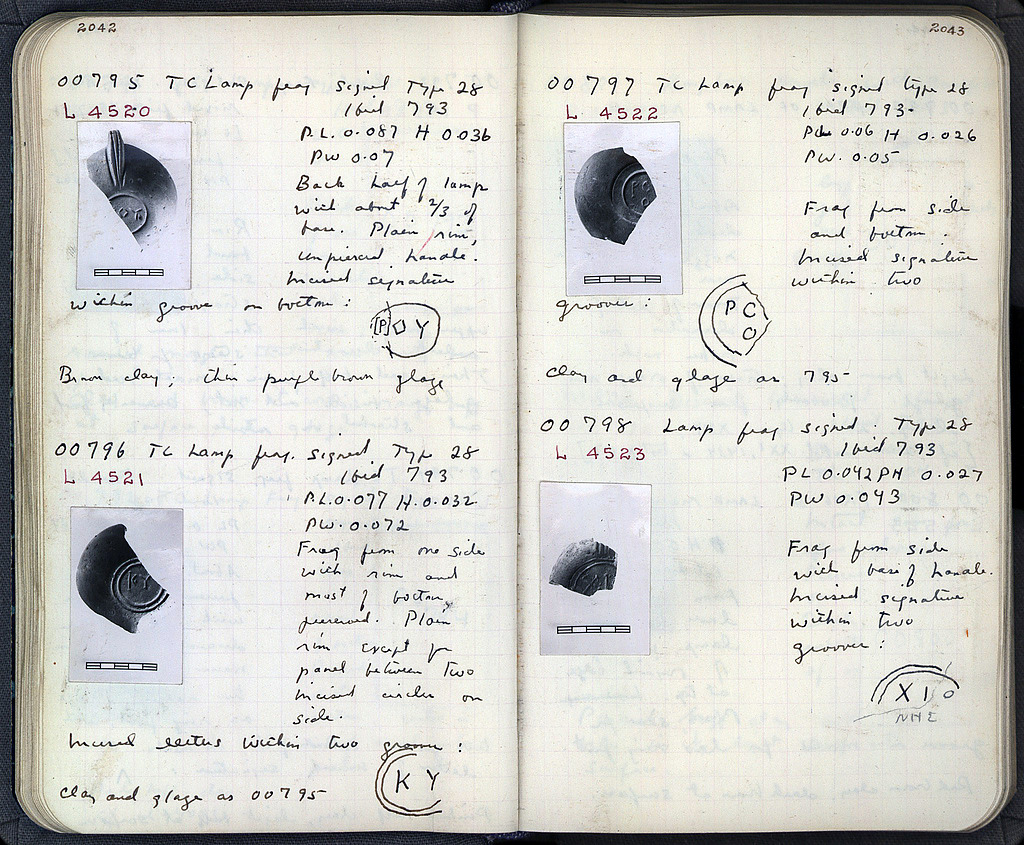 2042
00795 TC Lamp frag signed Type 28
L 4520
Ibid 793
P.L. 0.087 H 0.036
PW 0.07
Back half of lamp
with about 2/3 of
base. Plain rim,
unpierced handle.
Incised signature
within groove on bottom:
[P]OY
Brown clay, thin purple brown glaze
00796 TC Lamp frag. signed Type 28
L 4521
Ibid 793
P.L. 0.077 H. 0.032
PW. 0.072
Frag from one side
with rim and
most of bottom
preserved. Plain
rim except for
panel between two
incised circles on
side.
Incised letters within two grooves:
KY
Clay and glaze as 00795
2043
00797 TC Lamp frag signed type 28
L 4522
Ibid 793.
PL 0.06 H 0.026
PW. 0.05
Frag from side
and bottom.
Incised signature
within two
grooves:
PC
O
Clay and glaze as 795
00798 Lamp frag signed. Type 28
L 4523
Ibid 793
PL 0.042 PH 0.027
PW 0.043
Frag from side
with base of handle.
Incised signature
within two
grooves:
XIO
NHE